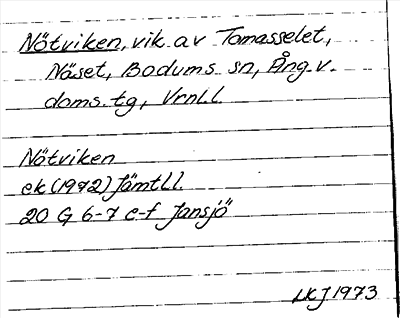 Nötviken, vik av Tomasselet,
Näset, Bodums sn, Ång. v.
doms. tg, Vrnl.l.
Nötviken
ek (1972) Jämtl.l.
20 G 6-7 e-f Jansjö
LKJ 1973